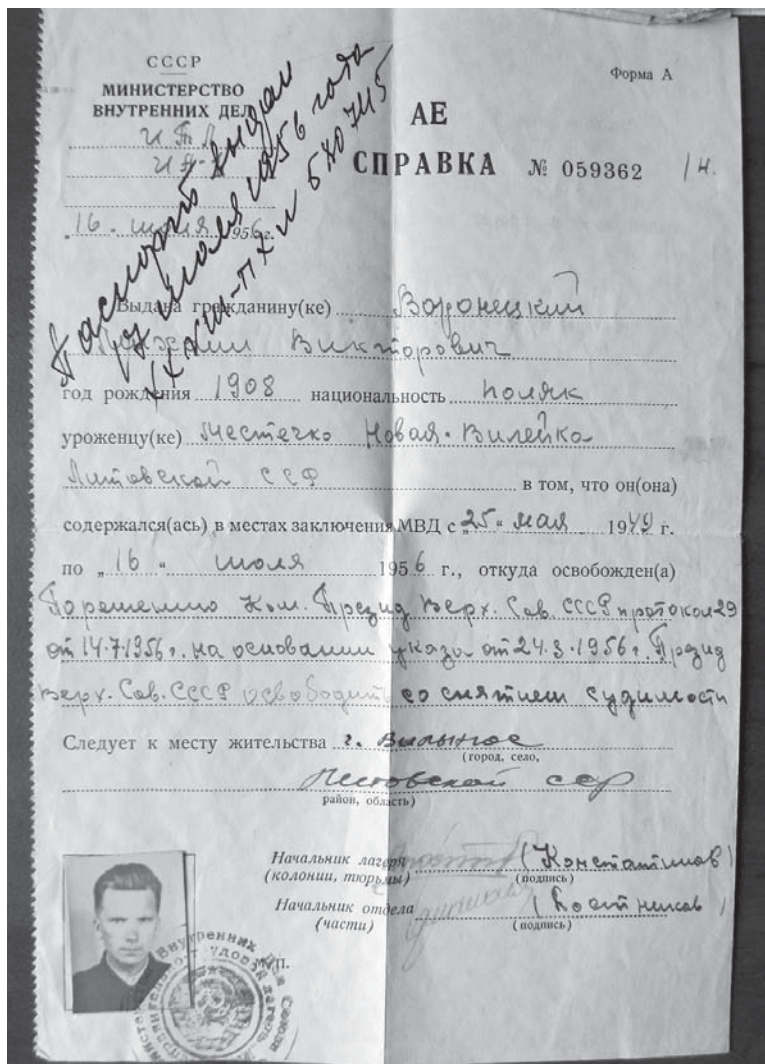 СССР
МИНИСТЕРСТВО
ВНУТРЕННИХ ДЕЛ
Форма А
АЕ
СПРАВКА № 059362
„16“ июля 1956 г.
Паспорт выдан
июля 1956 года
540745
Выдана гражданину(ке) Воронецкий
Викторович
год рождения 1908 национальность поляк
уроженцу(ке) местечко Новая-Вилейка
Литовской ССР в том, что он(она)
содержался(ась) в местах заключения МВД с „25“ мая 1949 г.
по „16“ июля 1956 г., откуда освобожден(а)
По решению Ком. Презид Верх. Сов. СССР протокол 29
от 14.7.1956 г. на основании указа от 24.3.1956 г. Презид
Верх. Сов. СССР освободить со снятием судимости
Следует к месту жительства г. Вильнюс
(город, село,
Литовской ССР
район, область)
Начальник лагеря (Константинов)
(колонии, тюрьмы) (подпись)
Начальник отдела (Постников)
(части) (подпись)
М. П.